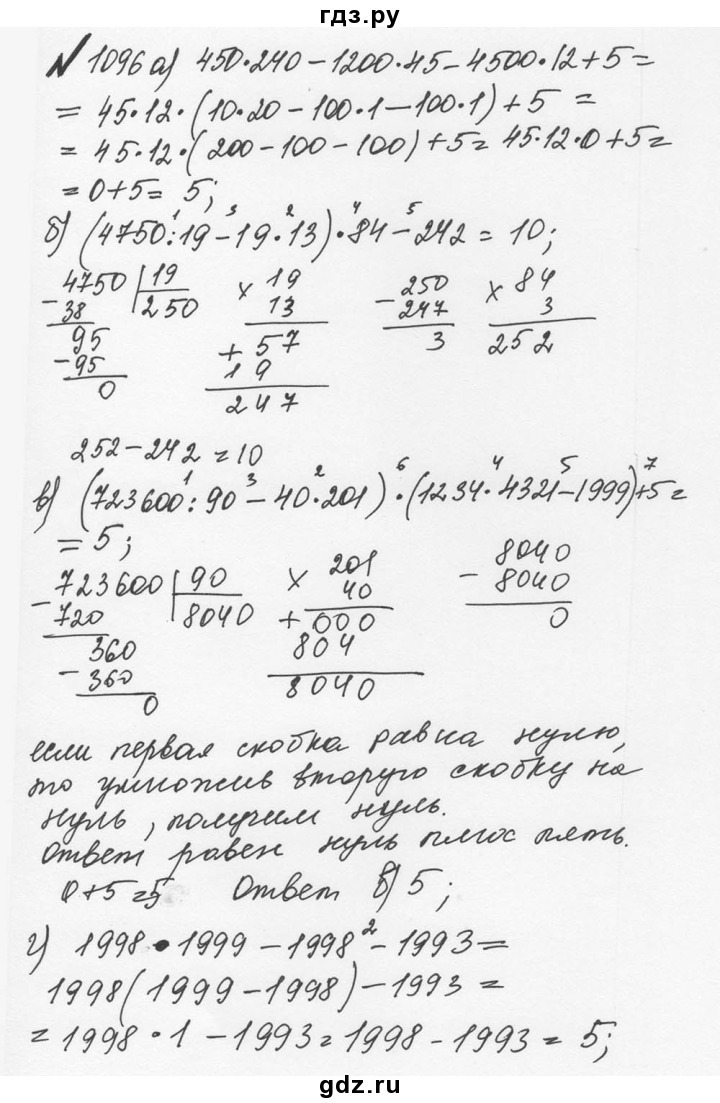 гдз.ру
№ 1096 а) 450·240 − 1200·45 − 4500·12 + 5 =
= 45·12·(10·20 − 100·1 − 100·1) + 5 =
= 45·12·(200 − 100 − 100) + 5 = 45·12·0 + 5 =
= 0 + 5 = 5;
1 3 2 4 5
б) (4750:19 − 19·13)·84 − 242 = 10;
4750 19 × 19 − 250 × 84
− 38 250 13 247 3
95 + 57 3 252
− 95 19
0 247
252 − 242 = 10
1 3 2 6 4 5 7
в) (723600:90 − 40·201)·(1234·4321 − 1999) + 5 =
= 5;
− 723600 90 × 201 − 8040
720 8040 40 8040
360 + 000 0
− 360 804
0 8040
если первая скобка равна нулю,
то умножив вторую скобку на
нуль, получим нуль.
Ответ равен нуль плюс пять.
0 + 5 = 5 Ответ в) 5;
г) 1998·1999 − 1998² − 1993 =
1998(1999 − 1998) − 1993 =
= 1998·1 − 1993 = 1998 − 1993 = 5;
gdz.ru